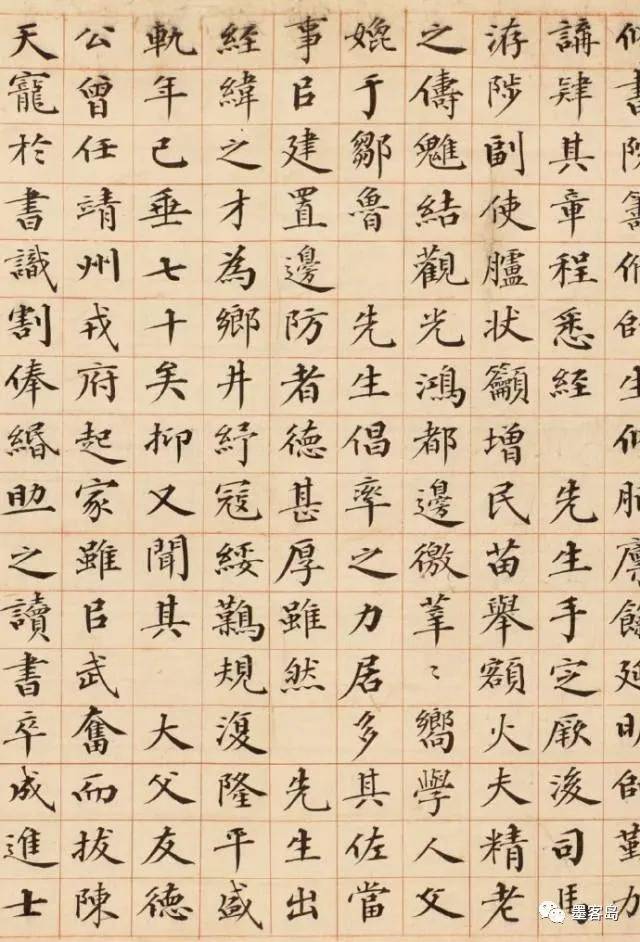 修書院籌師生修脯廩餼延明師勤力
講肄其章程悉經 先生手定厥後司馬
游陟副使臚狀籲增民苗舉額火夫精老
之儔魋結觀光鴻都邊徼莘〻嚮學人父
媲于鄒魯 先生倡率之力居多其佐當
事㠯建置邊防者德甚厚雖然 先生出
經緯之才為鄉井紓寇綏難規復隆平盛
軌年已垂七十矣抑又聞其 大父友德
公曾任靖州戎府起家雖㠯武奮而拔陳
天寵於書識割俸緡助之讀書卒成進士
墨客岛